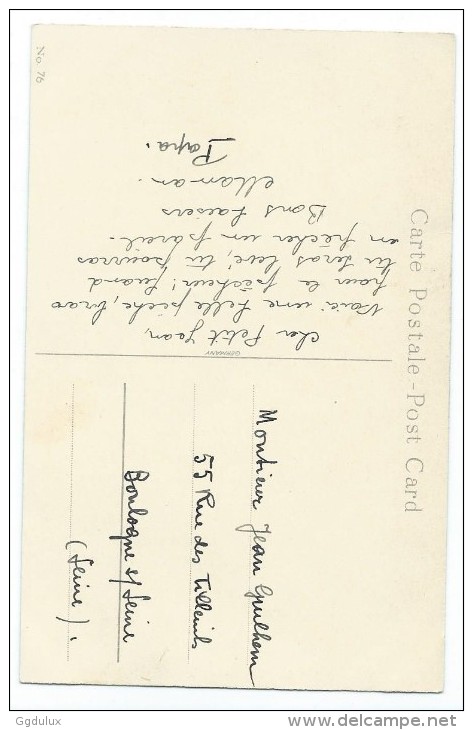 Carte Postale - Post Card
No. 76
cher Petit Jean,
Voici une belle pêche, bravo
pour le pêcheur! Quand
tu seras levé, tu pourras
en pêcher un pareil.
Bons baisers
Maman.
Papa.
GERMANY
Monsieur Jean Guilhem
55 Rue des Tilleuls
Boulogne s/ Seine
(Seine).
Ggdulux
www.delcampe.net